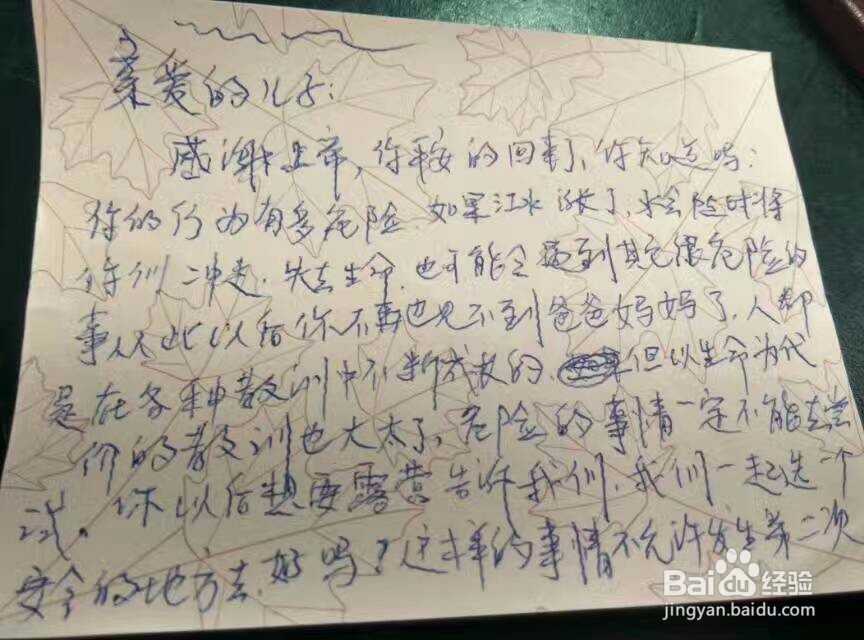 亲爱的儿子:
感谢上帝,你平安的回来了,你知道吗:
你的行为有多危险.如果江水涨了,水会随时将
你们冲走.失去生命.也可能会遇到其它很危险的
事从此以后你不再也见不到爸爸妈妈了,人都
是在各种教训中不断成长的,但以生命为代
价的教训也大太了,危险的事情一定不能去尝
试。你以后想要露营告诉我们,我们一起选一个
安全的地方去,好吗?这样的事情不允许发生第二次
Baidu经验
jingyan.baidu.com